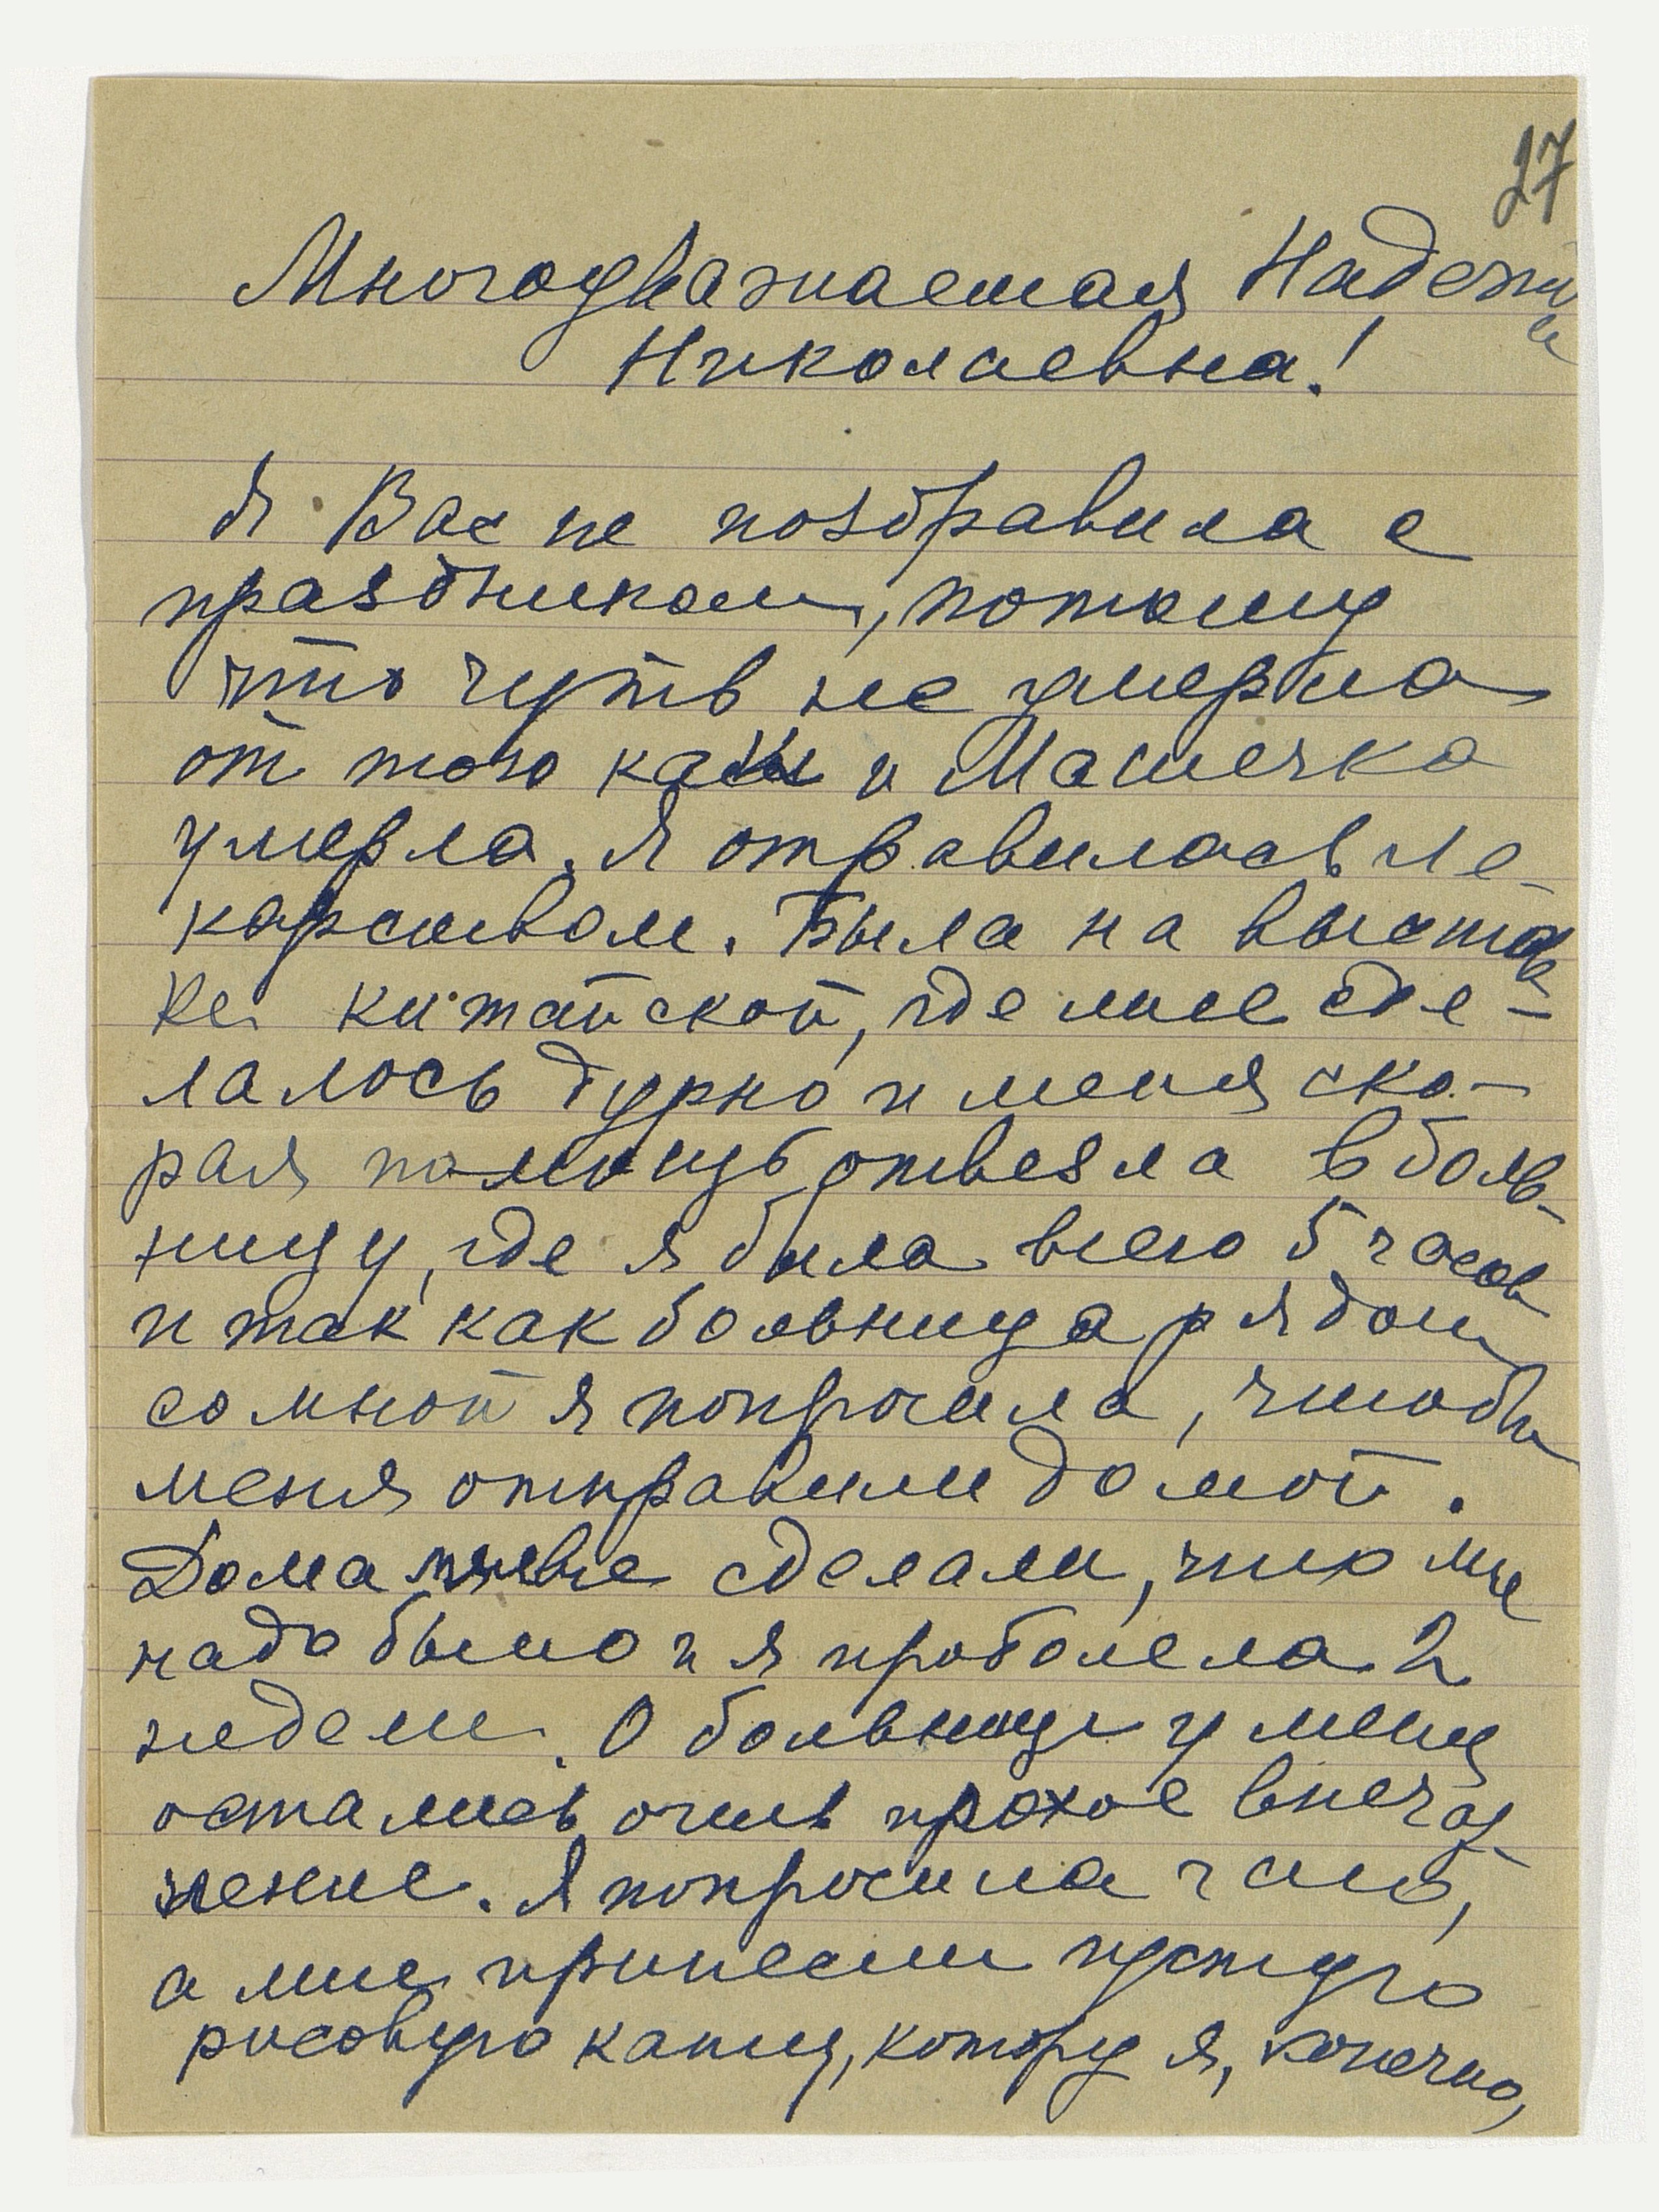 27
Многоуважаемая Надежда
Николаевна!
Я Вас не поздравила с
праздником, потому
что чуть не умерла
от того как и Машечка
умерла. Я отравилась ле-
карством. Была на выстав-
ке китайской, где мне сде-
лалось дурно и меня ско-
рая помощь отвезла в боль-
ницу, где я была всего 5 часов
и так как больница рядом
со мной я попросила, чтобы
меня отправили домой.
Дома мне все сделали, что мне
надо было и я проболела 2
недели. О больнице у меня
осталось очень плохое впечат-
ление. Я попросила чаю,
а мне принесли густую
рисовую кашу, котору я, конечно,